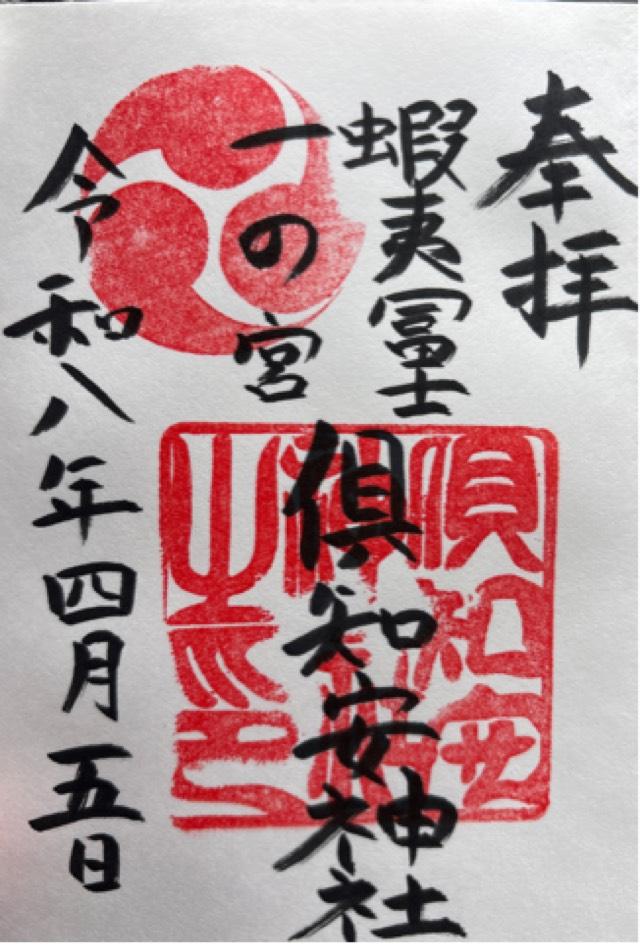 奉拝
蝦夷冨士
一の宮
倶知安神社
令和八年四月五日
倶知安
神社
之印